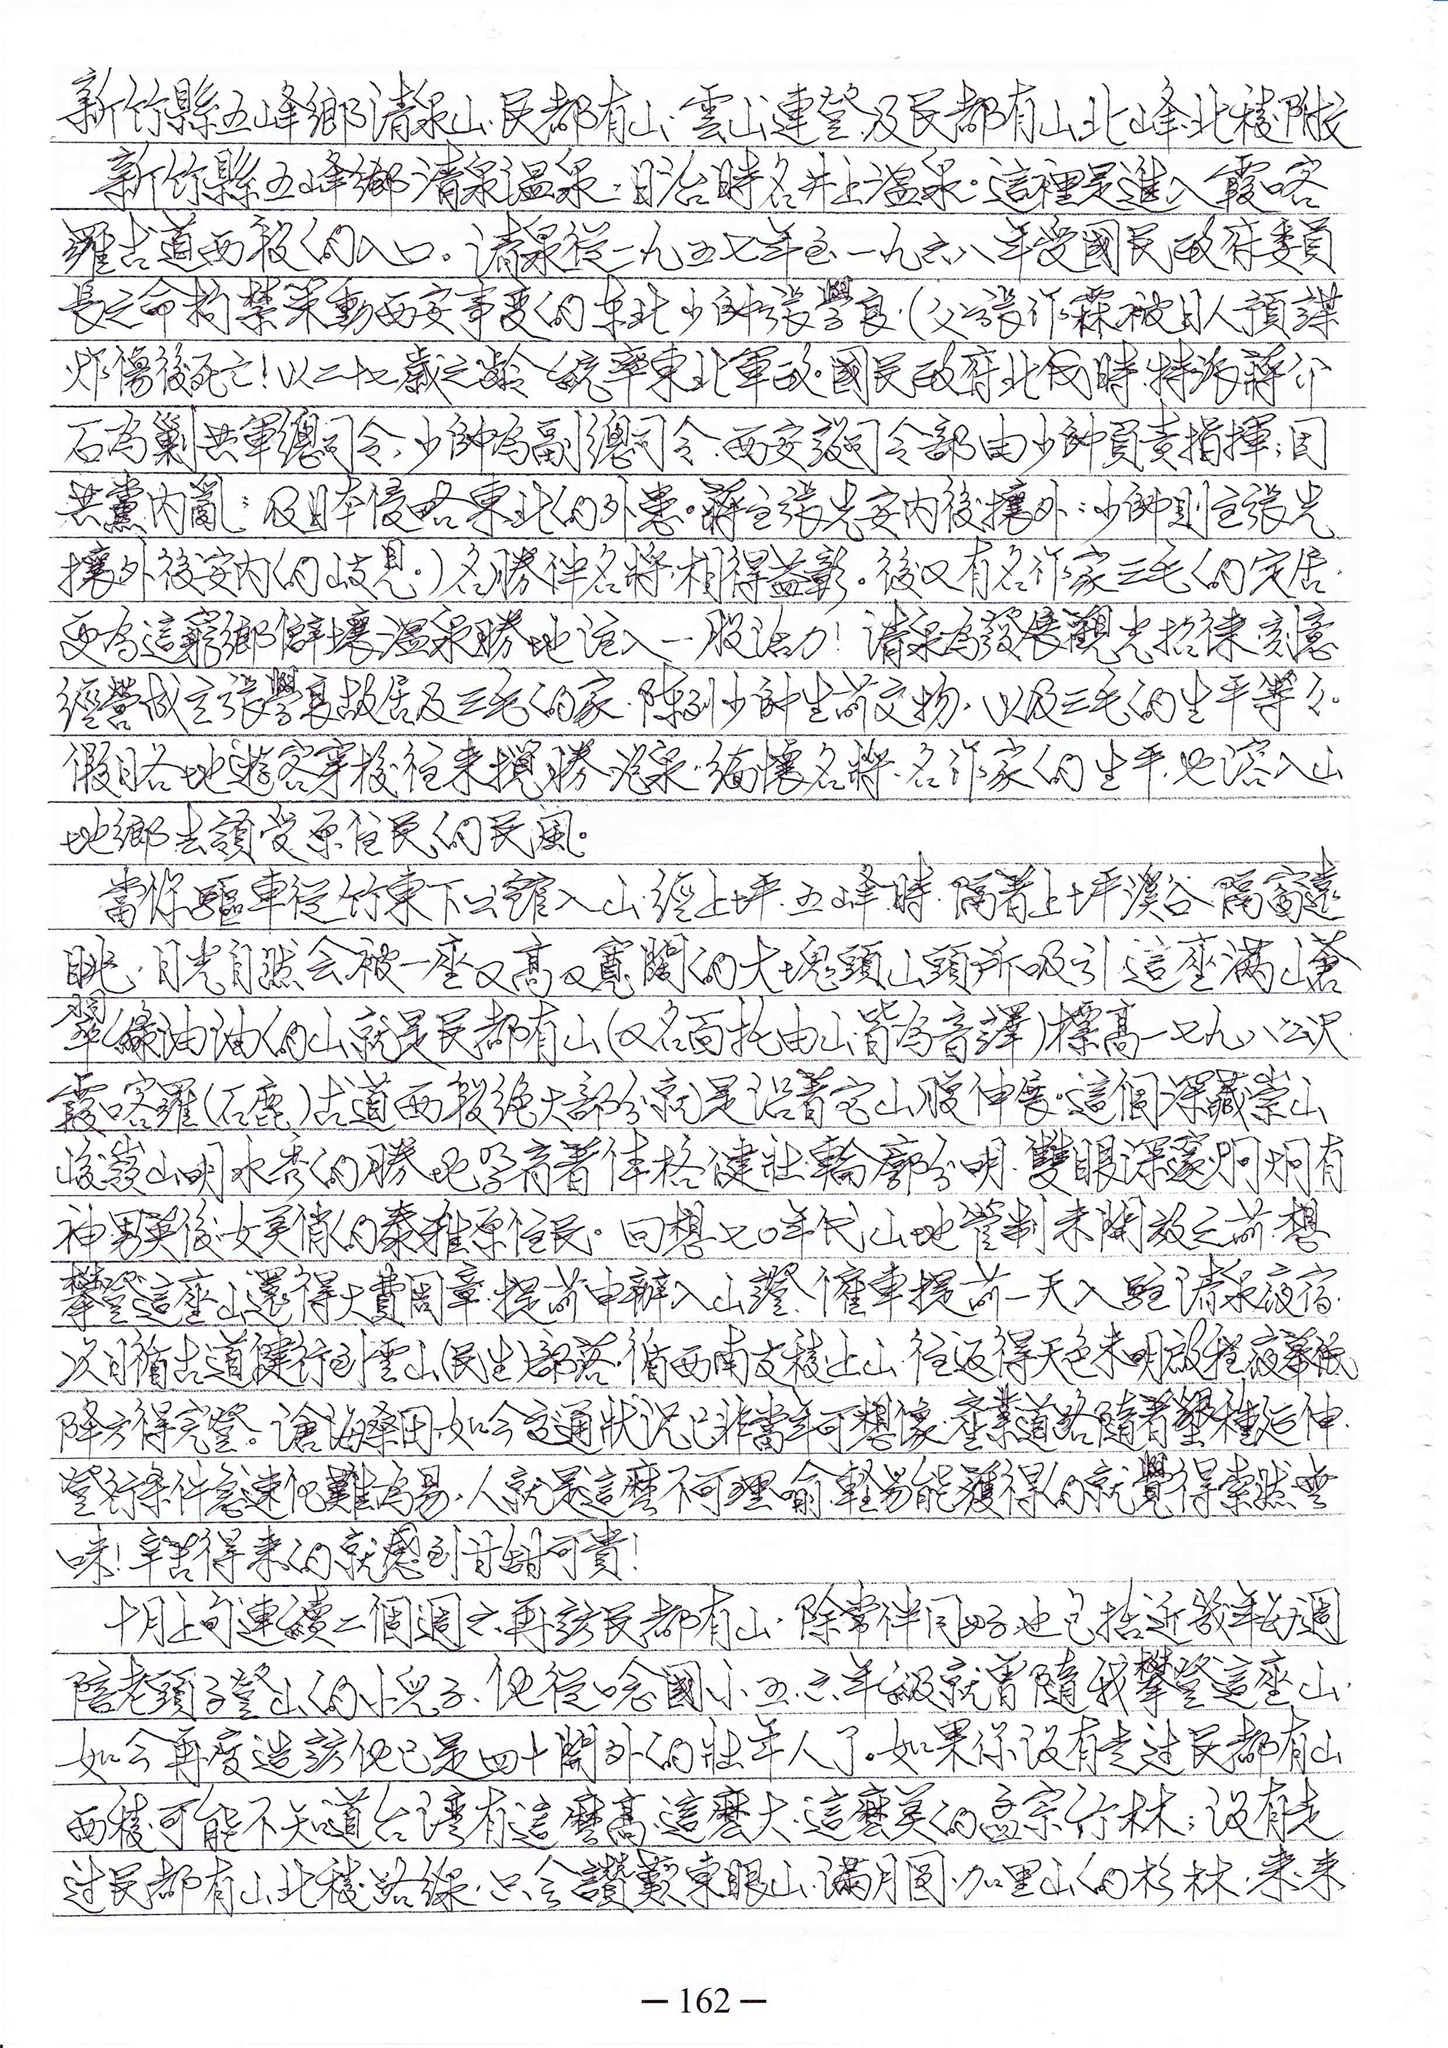 新竹縣五峰鄉清泉山、民都有山、雲山連登及民都有山北峰北稜附校
新竹縣五峰鄉清泉溫泉;日治時名井上溫泉。這裡是進入霞喀
羅古道西段的入口。清泉從一九五七年至一九六八年受國民政府委員
長之命拘禁策動西安事變的東北少帥張學良.(父張作霖被日人預謀
炸傷後死亡!以二十七歲之齡統率東北軍政.國民政府北伐時.特派蔣介
石為剿共軍總司令,少帥為副總司令.西安設司令部由少帥負責指揮;因
共黨內亂;及日本侵略東北的外患。蔣主張先安內後攘外;少帥則主張先
攘外後安內的歧見。)名勝伴名將.相得益彰。後又有名作家三毛的定居.
更為這窮鄉僻壤溫泉勝地注入一股活力!清泉為發展觀光招徠.刻意
經營成立張學良故居及三毛的家.陳列少帥生前文物,以及三毛的生平等等.
假日各地遊客穿梭往來攬勝.泡泉.緬懷名將.名作家的生平.也溶入山
地鄉去領受原住民的民風。
當你驅車從竹東下公館入山.經上坪.五峰時.隔著上坪溪谷.隔窗遠
眺.目光自然会被一座又高又寬闊的大塊頭山頭所吸引.這座滿山蒼
翠綠油油的山就是民都有山(又名面托由山皆為音譯)標高一七九八公尺.
霞喀羅(石鹿)古道西段絕大部分就是沿著它山腹伸展。這個深藏崇山
峻嶺山明水秀的勝地孕育著体格健壯.輪廓分明.雙眼深邃炯炯有
神男英俊女美俏的泰雅原住民。回想七〇年代山地管制未開放之前.想
攀登這座山還得大費周章.提前申辦入山證、僱車提前一天入駐清泉夜宿.
次日循古道健行到雲山(民生)部落.循西南支稜上山.往返得天色未明啟程夜幕低
降方得完登。滄海桑田.如今交通狀況已非當年可想像.產業道路隨著墾種延伸.
登行条件急速化難為易.人就是這麼不可理喻.輕易能獲得的就覺得索然無
味!辛苦得来的就感到甘甜可貴!
十月上旬連續二個週六再訪民都有山.除常伴同好.也包括近幾年每週
陪老頭子登山的小兒子.他從唸國小五.六年級就曾隨我攀登這座山.
如今再度造訪他已是四十開外的壯年人了。如果你沒有走过民都有山
西稜.可能不知道台灣有這麼高.這麼大.這麼美的孟宗竹林;沒有走
过民都有山北稜路線.只会讚歎東眼山.滿月圓.加里山的杉林.来来
— 162 —